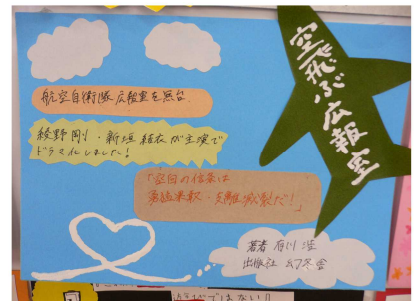 空飛ぶ広報室
航空自衛隊広報室を舞台
綾野剛・新垣結衣が主演で
ドラマ化しました!
「空自の信条は
勇猛果敢・支離滅裂だ!」
著者 有川浩
出版社 幻冬舎
ではない!!